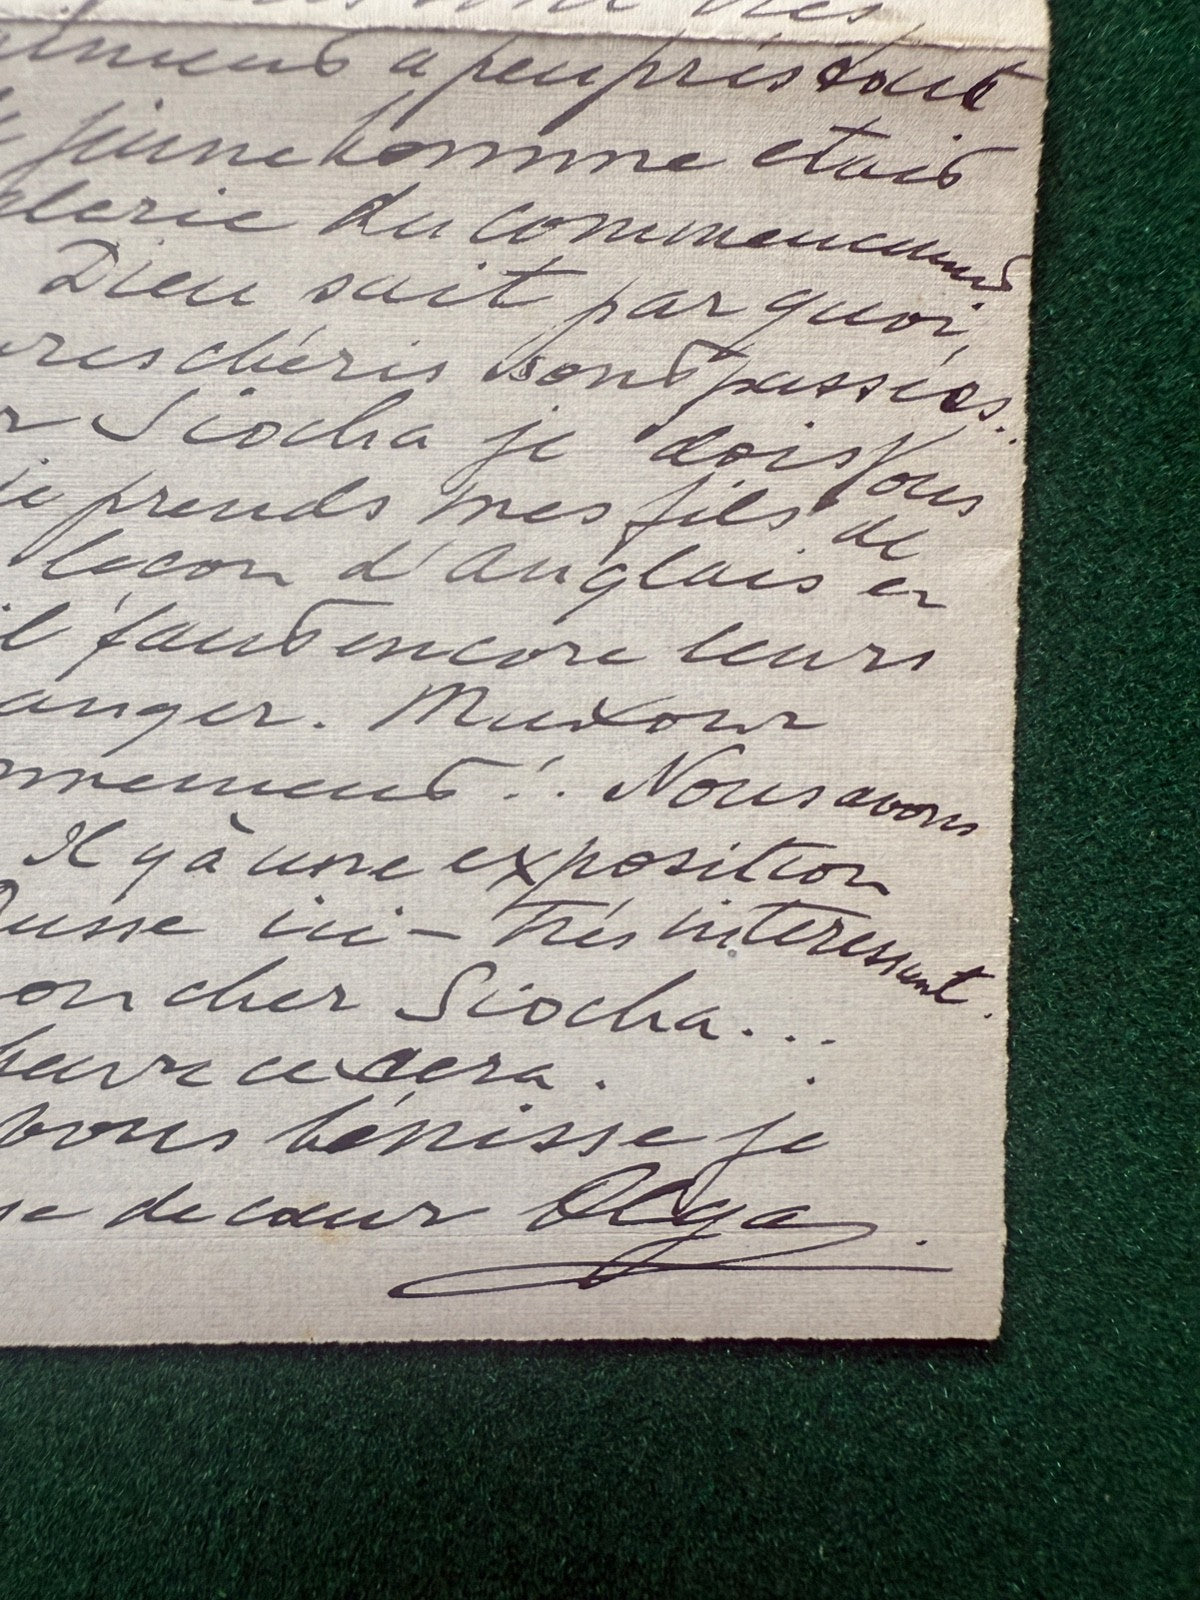 à peu près tout
jeune homme etait
du commencement
Dieu sait par quoi,
chéris sont passées..
Siocha je dois Vous
je prends mes fils de
lecon d'Anglais en
il faut encore leurs
anger.
! . Nous avons
Il y à une exposition
Russe ici – très interessent.
on cher Siocha...
heure ce sera.
vous bénisse je
se de cœur Olga.